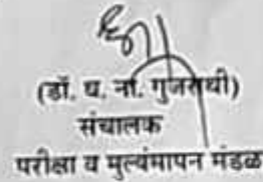 (डॉ. ध. ना. गुजराथी)
संचालक
परीक्षा व मुल्यंमापन मंडळ